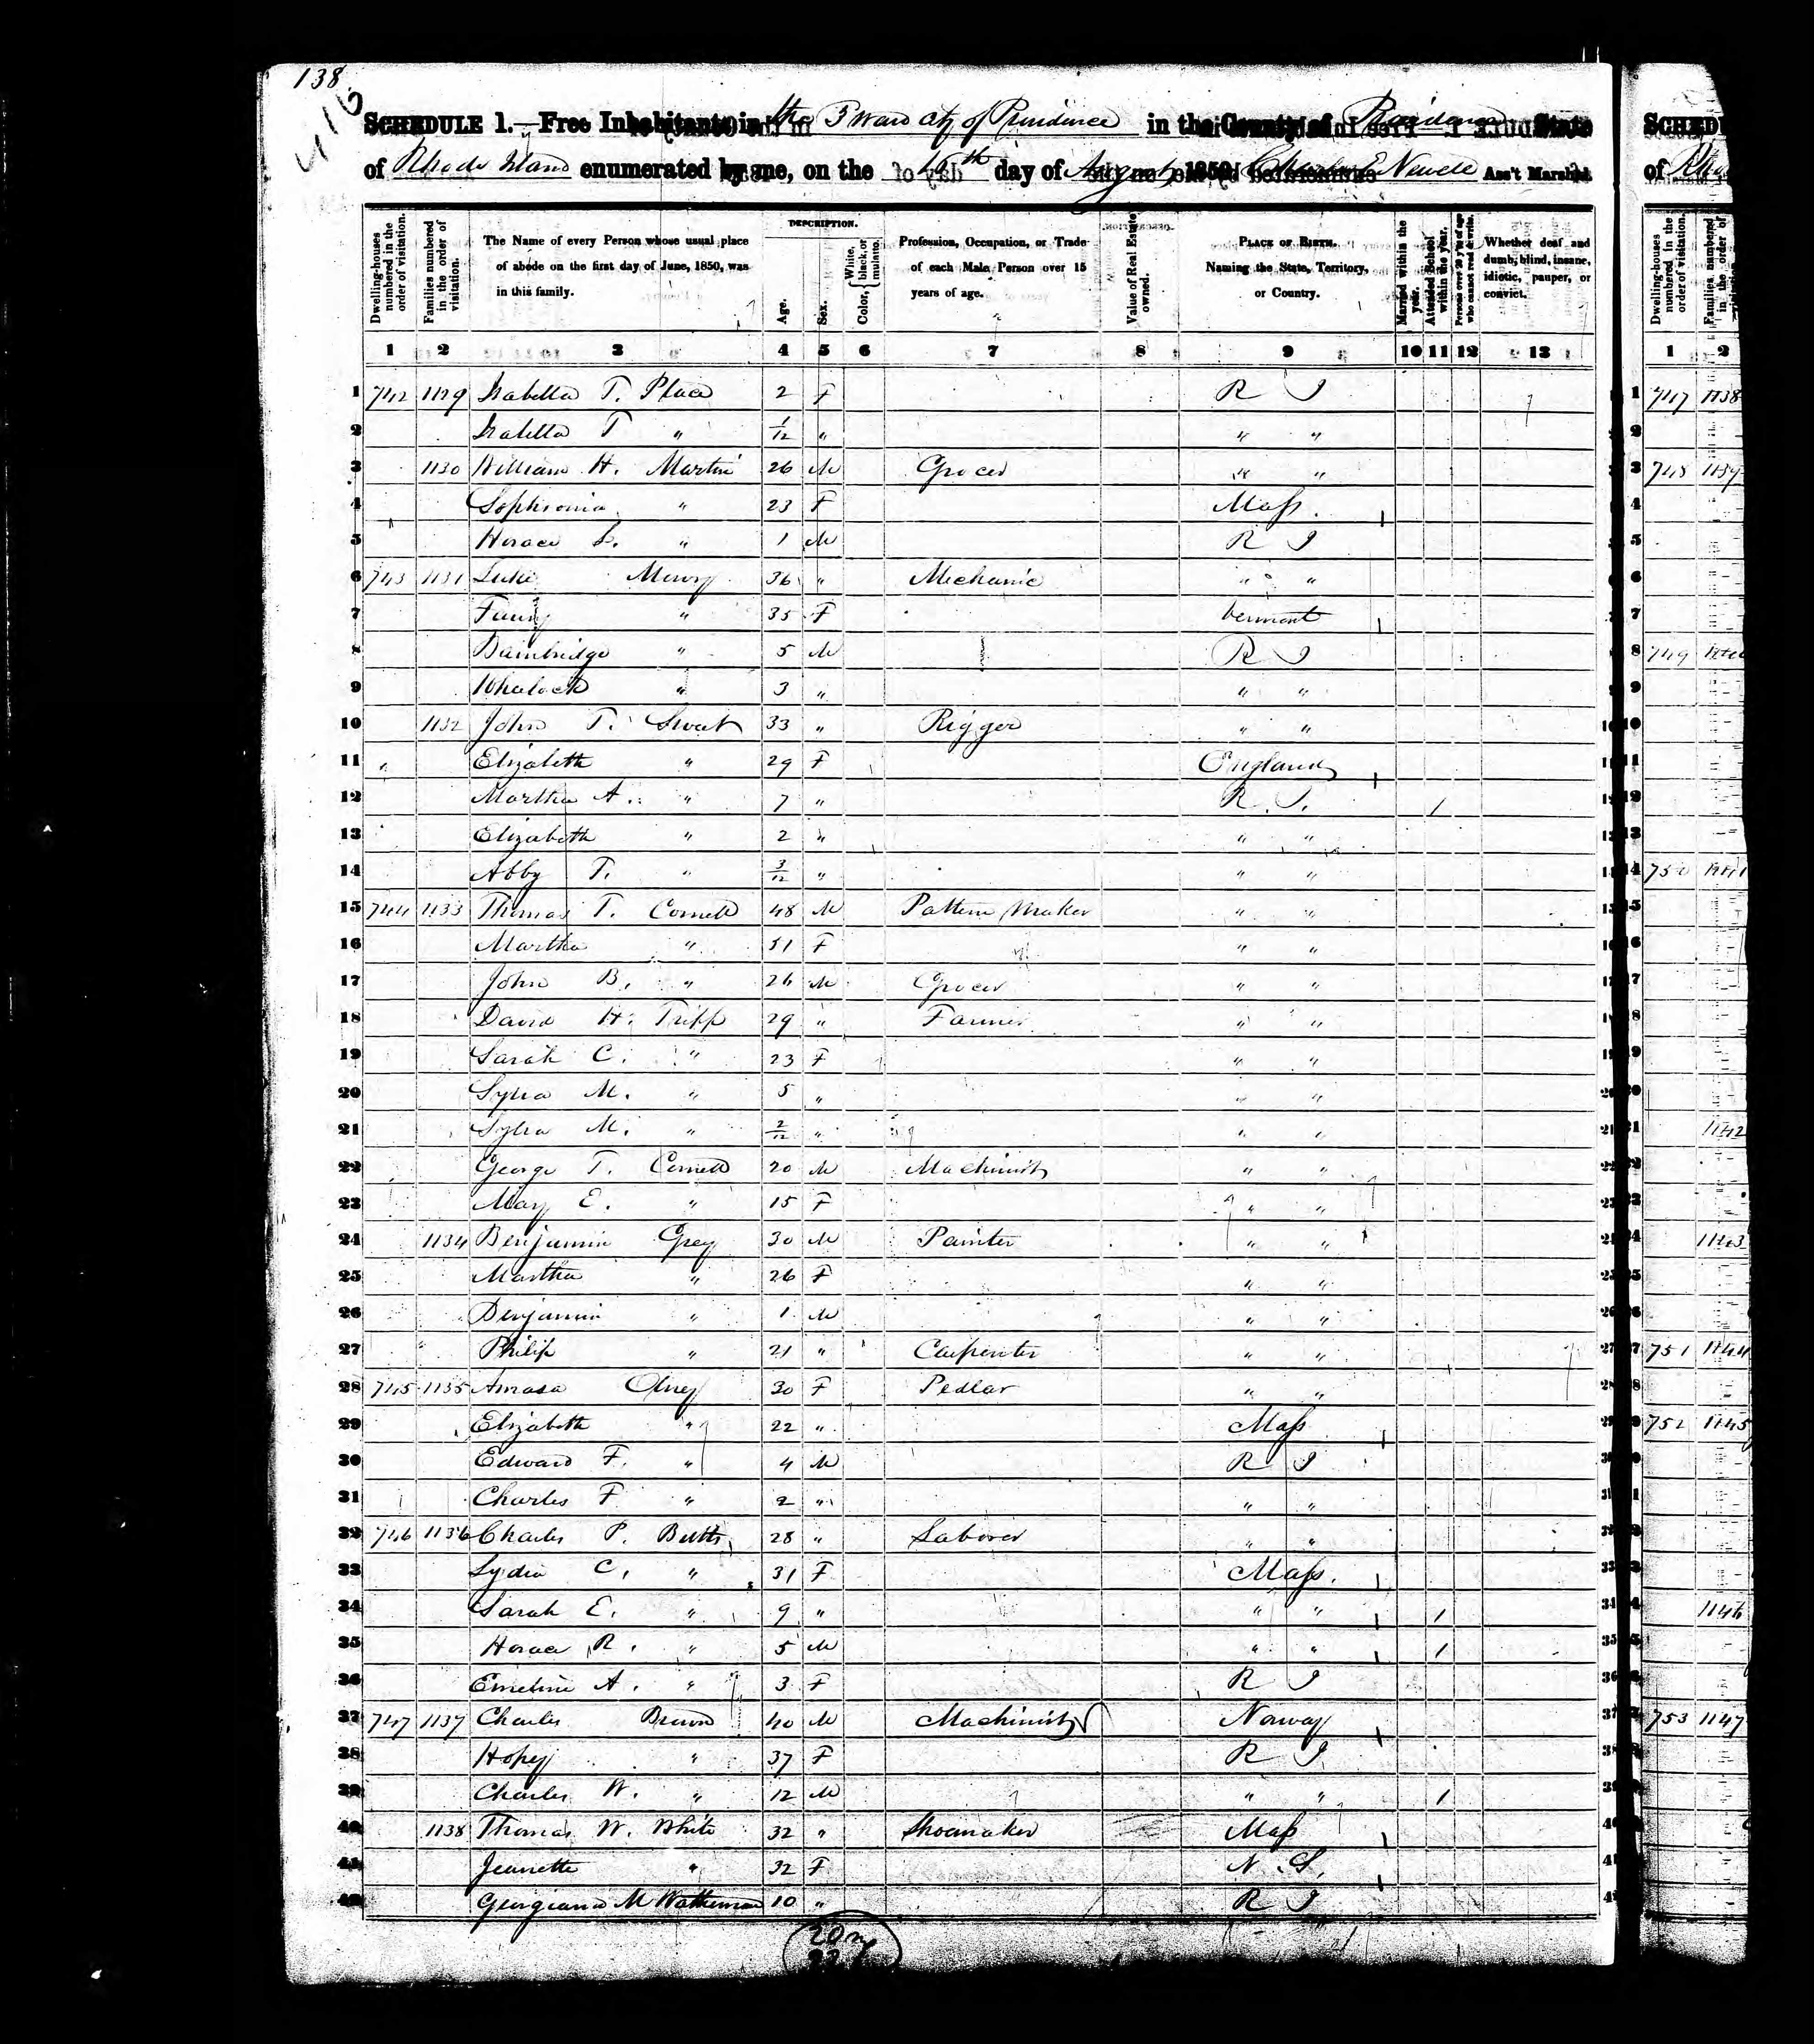 138
416
SCHEDULE 1.—Free Inhabitants in the 3 Ward City of Providence in the County of Providence State
of Rhode Island enumerated by me, on the day of August, 1850. Charles E Newell Ass't Marshal.
Dwelling-houses numbered in the order of visitation.
Families numbered in the order of visitation.
The Name of every Person whose usual place of abode on the first day of June, 1850, was in this family.
DESCRIPTION.
Age.
Sex.
Color, White, black, or mulatto.
Profession, Occupation, or Trade of each Male Person over 15 years of age.
Value of Real Estate owned.
PLACE OF BIRTH. Naming the State, Territory, or Country.
Married within the year.
Attended School within the year.
Persons over 20 y'rs of age who cannot read & write.
Whether deaf and dumb, blind, insane, idiotic, pauper, or convict.
1 2 3 4 5 6 7 8 9 10 11 12 13
1 742 1129 Isabella T. Place 2 F R I
2 Isabella T " 1/12 " " "
3 1130 William H. Martin 26 M Grocer " "
4 Sophronia " 23 F Mass.
5 Horace L. " 1 M R I
6 743 1131 Luke Mowry 36 " Mechanic " "
7 Fanny " 35 F Vermont
8 Bainbridge " 5 M R I
9 Whalock " 3 " " "
10 1132 John T. Sweet 33 " Rigger " "
11 Elizabeth " 29 F England
12 Martha A. " 7 " R I. 1
13 Elizabeth " 2 " " "
14 Abby T. " 3/12 " " "
15 744 1133 Thomas T. Cornell 48 M Pattern Maker " "
16 Martha " 51 F " "
17 John B. " 26 M Grocer " "
18 David H. Tripp 29 " Farmer " "
19 Sarah C. " 23 F " "
20 Sylva M. " 5 " " "
21 Sylva M. " 2/12 " " "
22 George T. Cornell 20 M Machinist " "
23 Mary E. " 15 F " "
24 1134 Benjamin Grey 30 M Painter " "
25 Martha " 26 F " "
26 Benjamin " 1 M " "
27 Philip " 21 " Carpenter " "
28 745 1135 Amasa Olney 30 F Pedlar " "
29 Elizabeth " 22 " Mass
30 Edward F. " 4 M R I
31 Charles F " 2 " " "
32 746 1136 Charles P. Butts 28 " Laborer " "
33 Lydia C. " 31 F Mass.
34 Sarah E. " 9 " " " 1
35 Horace R. " 5 M " " 1
36 Emeline A. " 3 F R I
37 747 1137 Charles Brown 40 M Machinist Norway
38 Hopey " 37 F R I
39 Charles W. " 12 M " " 1
40 1138 Thomas W. White 32 " Shoemaker Mass
41 Jeanette " 32 F N. S.
42 Georgianna M Watherman 10 " R I
20 m
22 f
SCHEDU
of Rho
Dwelling-houses numbered in the order of visitation.
Families numbered in the order of
1 2
1 747 1138
2
3 748 1139
4
5
6
7
8 749
9
10
11
12
13
14 750
15
16
17
18
19
20
21 1142
22
23
24 1143
25
26
27 751 1144
28
29 752 1145
34 1146
37 753 1147